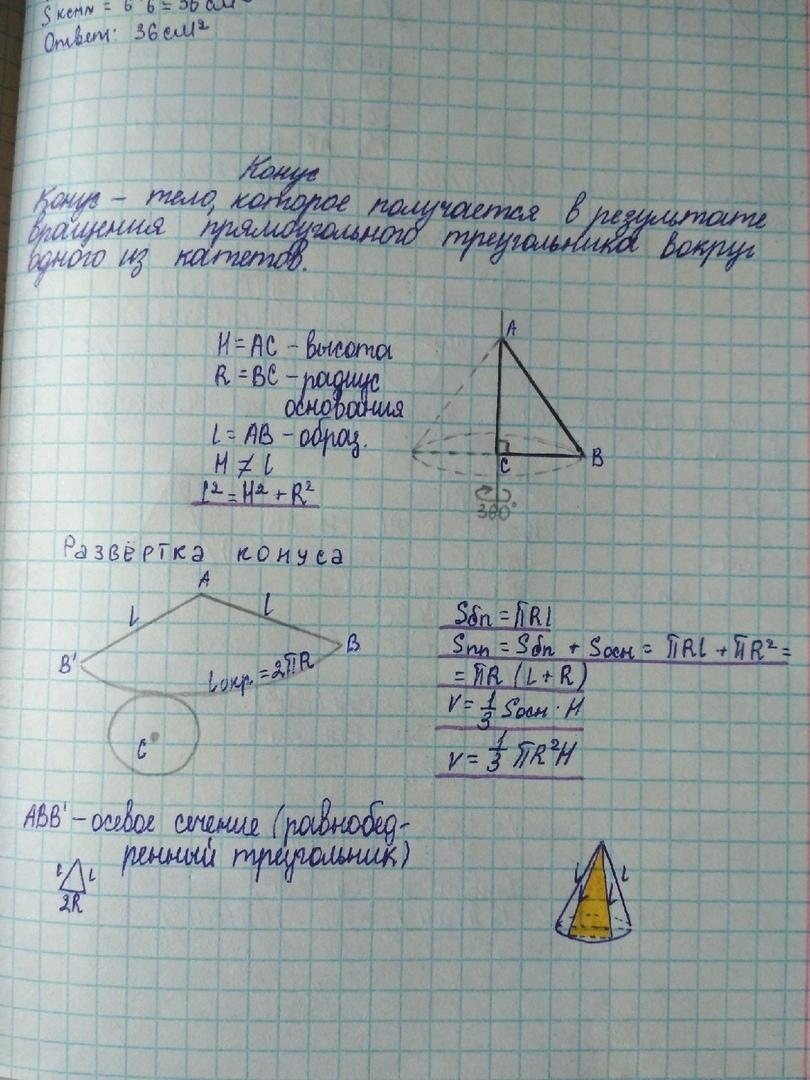 Sксмн = 6·6 = 36 см²
Ответ: 36 см²
Конус
Конус – тело, которое получается в результате
вращения прямоугольного треугольника вокруг
одного из катетов.
H = AC – высота
R = BC – радиус
основания
l = AB – образ.
H ≠ l
l² = H² + R²
A
C
B
360°
Развёртка конуса
A
l
l
B'
B
lокр. = 2πR
C
Sбп = πRl
Sпп = Sбп + Sосн = πRl + πR² =
= πR (l + R)
V = 1/3 Sосн · H
V = 1/3 πR²H
ABB' – осевое сечение (равнобед-
ренный треугольник)
l
l
2R
l
l